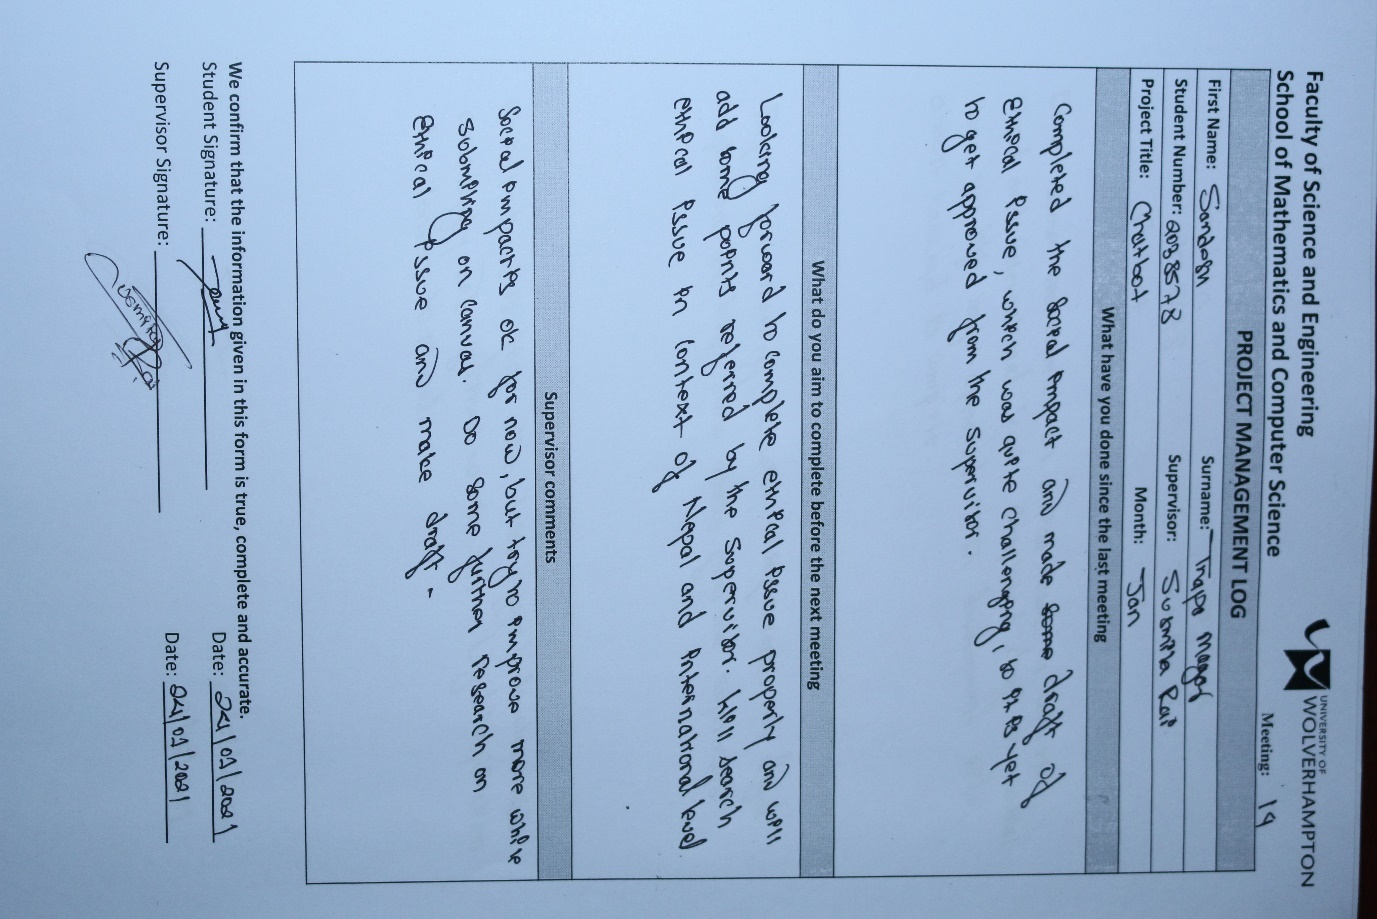 Faculty of Science and Engineering
School of Mathematics and Computer Science
UNIVERSITY OF
WOLVERHAMPTON
Meeting: 19
PROJECT MANAGEMENT LOG
First Name: Sandesh Surname: Thapa Magar
Student Number: 2038578 Supervisor: Susmita Rai
Project Title: Chatbot Month: Jan
What have you done since the last meeting
Completed the social impact and made some draft of
ethical issue, which was quite challenging, so it is yet
to get approved from the supervisor.
What do you aim to complete before the next meeting
Looking forward to complete ethical issue properly and will
add some points referred by the supervisor. Will search
ethical issue in context of Nepal and international level
Supervisor comments
Social impacts ok for now, but try to improve more while
submiting on canvas. Do some further research on
ethical issue and make draft.
We confirm that the information given in this form is true, complete and accurate.
Student Signature: Date: 24/01/2021
Supervisor Signature: Date: 24/01/2021